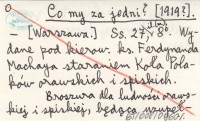 Co my za jedni? [1919?].
– [Warszawa.] Ss. 27 8°. Wy-
dane pod kierow. ks. Ferdynanda
Machaya staraniem Koła Pola-
ków orawskich i spiskich.
Broszura dla ludności oraw-
skiej i spiskiej, będąca